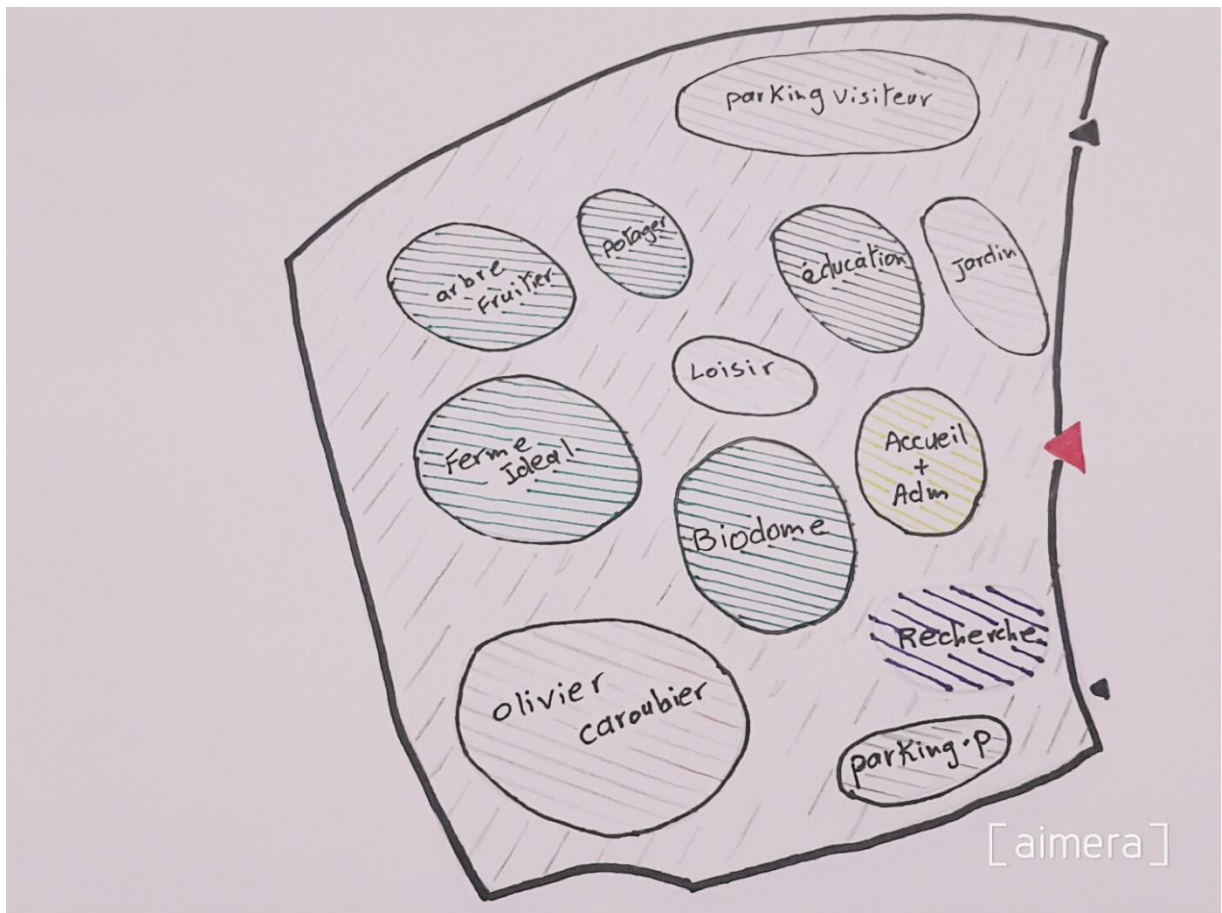 parking visiteur
potager
arbre
fruitier
éducation
Jardin
Loisir
Ferme
Ideal
Accueil
+
Adm
Biodome
Recherche
olivier
caroubier
parking.p
[aimera]